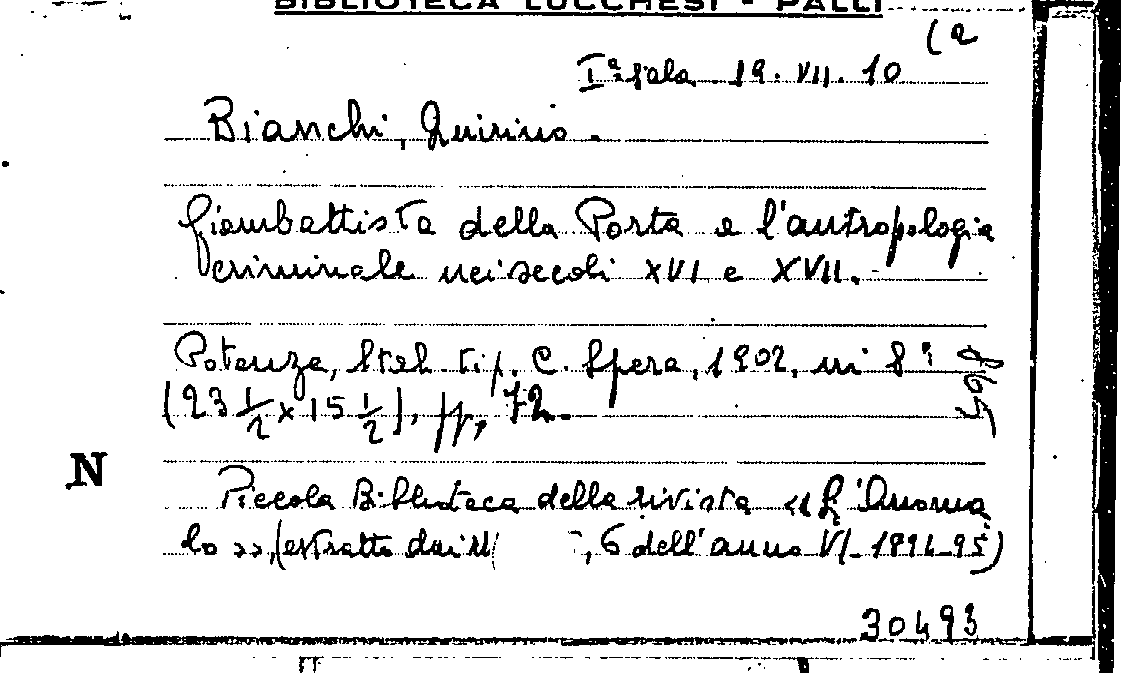 BIBLIOTECA LUCCHESI - PALLI
(2
Iª sala 19. VII. 10
Bianchi, Quirino.
Giambattista della Porta e l'antropologia
criminale nei secoli XVI e XVII.
Potenza, Stab. tip. C. Spera, 1902, in 8º
(23 1/2 x 15 1/2), pp. 72.
N
Piccola Biblioteca della rivista «L'Anoma
lo», (estratto dai N , 6 dell'anno VI - 1894-95)
30493